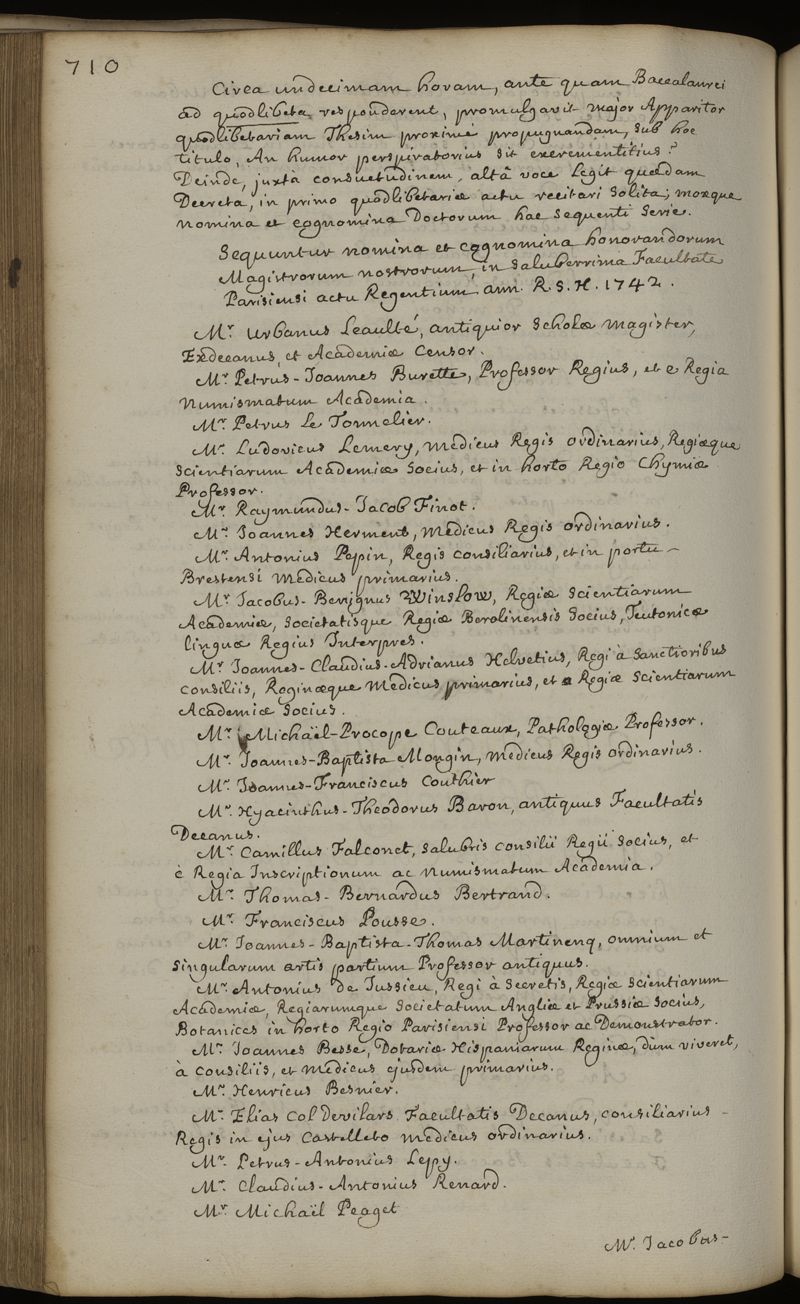 710
Circa undecimam horam, ante quam Baccalaurei
ad quodlibeta responderent, promulgavit major Apparitor
quodlibetariam Thesim proxime propugnandam, sub hoc
titulo, An humor perspiratorius sit excrementitius?
Deinde, juxtà consuetudinem, altâ voce Legit quædam
Decreta, in primo quodlibetariæ actu recitari solita; moxque
nomina et cognomina Doctorum hac sequenti Serie.
Sequuntur nomina et cognomina honorandorum
Magistrorum nostrorum, in saluberrima Facultate
Parisiensi actu Regentium. ann. R. S. H. 1742.
Mr. Urbanus Leaulté, antiquior scholæ magister,
Exdecanus, et Academiæ Censor.
Mr. Petrus-Joannes Burette, Professor Regius, et e Regia
numismatum Academia.
Mr. Petrus Le Tonnelier.
Mr. Ludovicus Lemery, medicus Regis ordinarius, Regiæque
scientiarum Academiæ socius, et in horto Regio Chymiæ
Professor.
Mr. Raymundus-Jacob Finot.
Mr. Joannes Herment, medicus Regis ordinarius.
Mr. Antonius Pepin, Regis consiliarius, et in portu-
Brestensi medicus primarius.
Mr. Jacobus-Benignus Winslow, Regiæ scientiarum
Academiæ, societatisque Regiæ Berolinensis Socius, Teutonicæ
linguæ Regius Interpres.
Mr. Joannes-Claudius-Adrianus Helvetius, Regi à sanctioribus
consiliis, Reginæque medicus primarius, et Regiæ scientiarum
Academiæ socius.
Mr. Michaël-Procope Couteaux, Pathologiæ Professor.
Mr. Joannes-Baptista Mongin, medicus Regis ordinarius.
Mr. Joannes-Franciscus Couthier
Mr. Hyacinthus-Theodorus Baron, antiquus Facultatis
Decanus.
Mr. Camillus Falconet, salubris consilii Regii socius, et
è Regia Inscriptionum ac numismatum Academia.
Mr. Thomas-Bernardus Bertrand.
Mr. Franciscus Pousse.
Mr. Joannes-Baptista-Thomas Martinenq, omnium et
singularum artis partium Professor antiquus.
Mr. Antonius de Jussieu, Regi à secretis, Regiæ scientiarum
Academiæ, Regiarumque societatum Angliæ et Prussiæ socius,
Botanices in horto Regio Parisiensi Professor ac Demonstrator.
Mr. Joannes Besse, Dotariæ Hispaniarum Reginæ, dum viveret,
à consiliis, et medicus ejusdem primarius.
Mr. Henricus Besnier.
Mr. Elias Col Devilars Facultatis Decanus, consiliarius -
Regis in ejus Castelleto medicus ordinarius.
Mr. Petrus-Antonius Lepy.
Mr. Claudius-Antonius Renard.
Mr. Michaël Peaget
Mr. Jacobus-